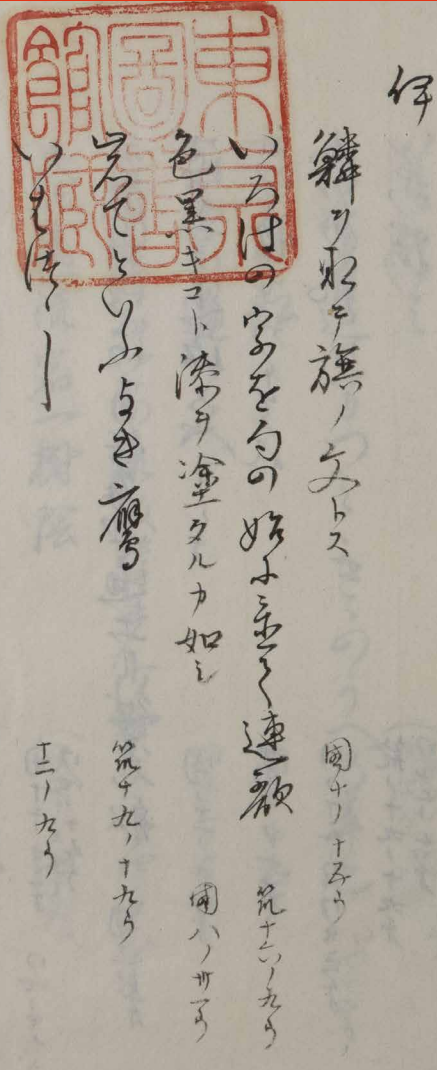 伊
鱗ヲ取テ旗ノ文トス 國十ノ十五ウ
いろはの字を句の始に置て連歌 筑十六ノ九ウ
色黒キコト漆ヲ塗タルカ如シ 國八ノ卅一ウ
岩てといふよき鷹 筑十九ノ十九ウ
十二ノ九ウ
東京圖書館藏